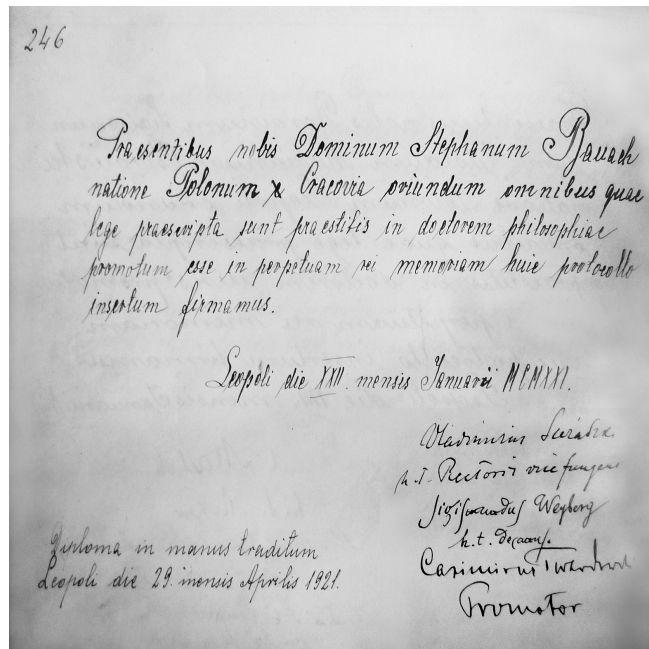 246
Praesentibus nobis Dominum Stephanum Banach
natione Polonum x Cracovia oriundum omnibus quae
lege praescripta sunt praestitis in doctorem philosophiae
promotum esse in perpetuam rei memoriam huic protocollo
insertum firmamus.
Leopoli die XXII. mensis Januarii MCMXXI.
Vladimirus
h. t. Rectoris vice fungens
Sigismundus Weyberg
h. t. Decanus.
Casimirus Twardowski
Promotor
Diploma in manus traditum
Leopoli die 29. mensis Aprilis 1921.